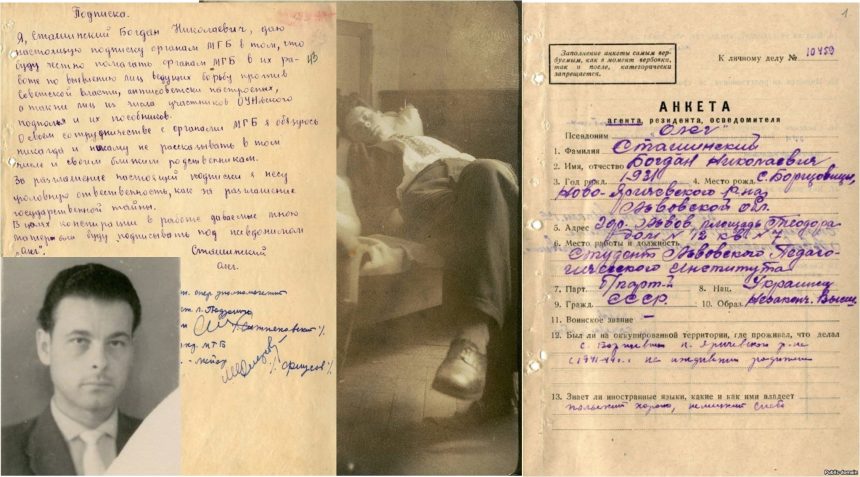 Подписка.
Я, Сташинский Богдан Николаевич, даю
настоящую подписку органам МГБ в том, что
буду честно помогать органам МГБ в их ра-
боте по выявлению лиц, ведущих борьбу против
советской власти, антисоветски настроених,
а также лиц из числа участников ОУНовского
подполья и их пособников.
О своем сотрудничестве с органами МГБ я обязуюсь
никогда и никому не рассказывать в том
числе и своим близким родственникам.
За разглашение настоящий подписки я несу
уголовную ответственность, как за разглашение
государственной тайны.
В целях конспирации в работе даваемые мною
материалы буду подписывать под псевдонимом
"Олег".
Сташинский
Олег.
МГБ
Заполнение анкеты самим вер-
буемым, как в момент вербовки,
так и после, категорически
запрещается.
1.
К личному делу № 10450
АНКЕТА
агента, резидента, осведомителя
Псевдоним "Олег"
1. Фамилия Сташинский
2. Имя, отчество Богдан Николаевич
3. Год рожд. 1931 4. Место рожд. с. Борщовицы,
Ново-Яричевского р-на
Львовской обл.
5. Адрес гор. Львов, площадь Теодора
дом № 12 кв. № 7
6. Место работы и должность
Студент Львовского Педаго-
гического Института
7. Парт. б/парт. 8. Нац. Украинец
9. Гражд. СССР 10. Образ. Незакон. Высш.
11. Воинское звание –
12. Был ли на оккупированной территории, где проживал, что делал
с. Борщевичи
на иждивении родители
13. Знает ли иностранные языки, какие и как ими владеет
польский хорошо, немецкий слабо
Public domain